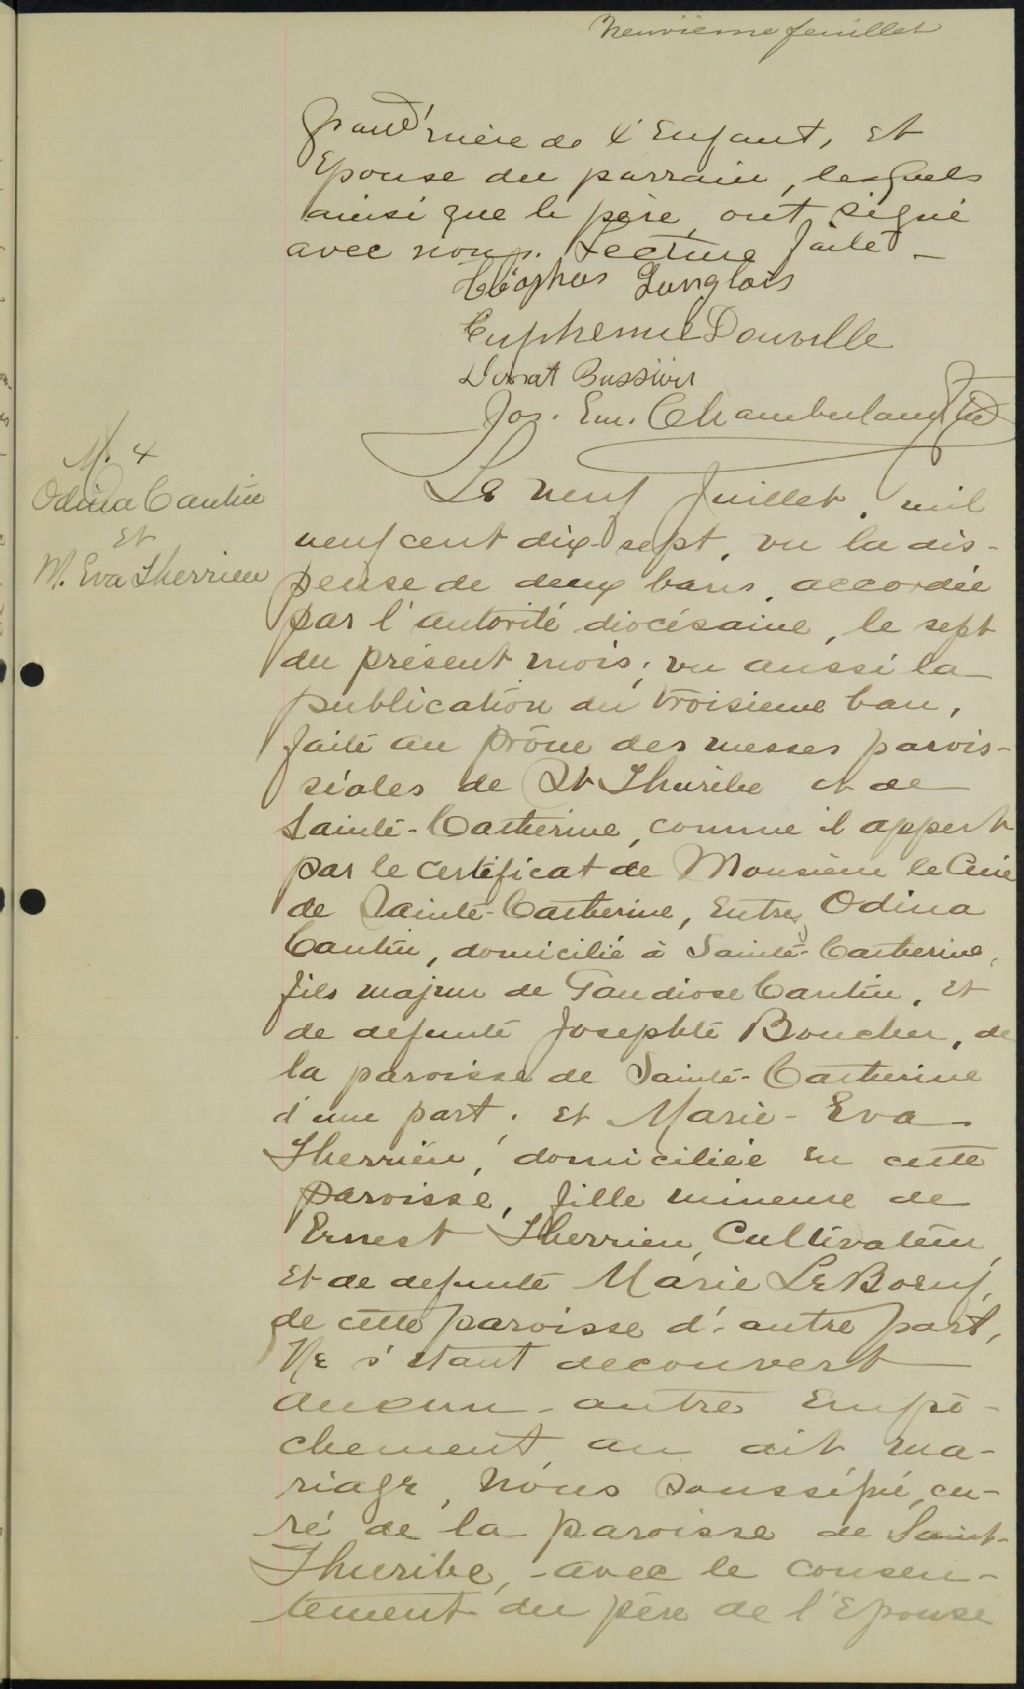 Neuvième feuillet
grand'mère de l'Enfant, et
Epouse du parrain, lesquels
ainsi que le père, ont signé
avec nous. Lecture faite _
Cléophas Langlois
Euphemie Douville
Donat Bussière
Jos. Em. Chamberland Ptre
M. 4
Odina Cantin
Et
M. Eva Therrien
Le neuf Juillet, mil
neuf cent dix-sept, vu la dis-
pense de deux bans, accordée
par l'autorité diocésaine, le sept
du présent mois; vu aussi la
publication du troisieme ban,
faite au prône des messes parois-
siales de St Thuribe et de
Sainte-Catherine, comme il appert
par le certificat de Monsieur le Curé
de Sainte-Catherine, Entre Odina
Cantin, domicilié à Sainte-Catherine,
fils majeur de Gaudiose Cantin, et
de defunte Josephte Boucher, de
la paroisse de Sainte-Catherine
d'une part; et Marie-Eva
Therrien, domiciliée en cette
paroisse, fille mineure de
Ernest Therrien, Cultivateur,
et de defunte Marie LeBoeuf,
de cette paroisse d'autre part,
Ne s'étant decouvert
aucun autre empê-
chement au dit ma-
riage, Nous soussigné, cu-
ré de la paroisse de Saint-
Thuribe, avec le consen-
tement du père de l'Epouse